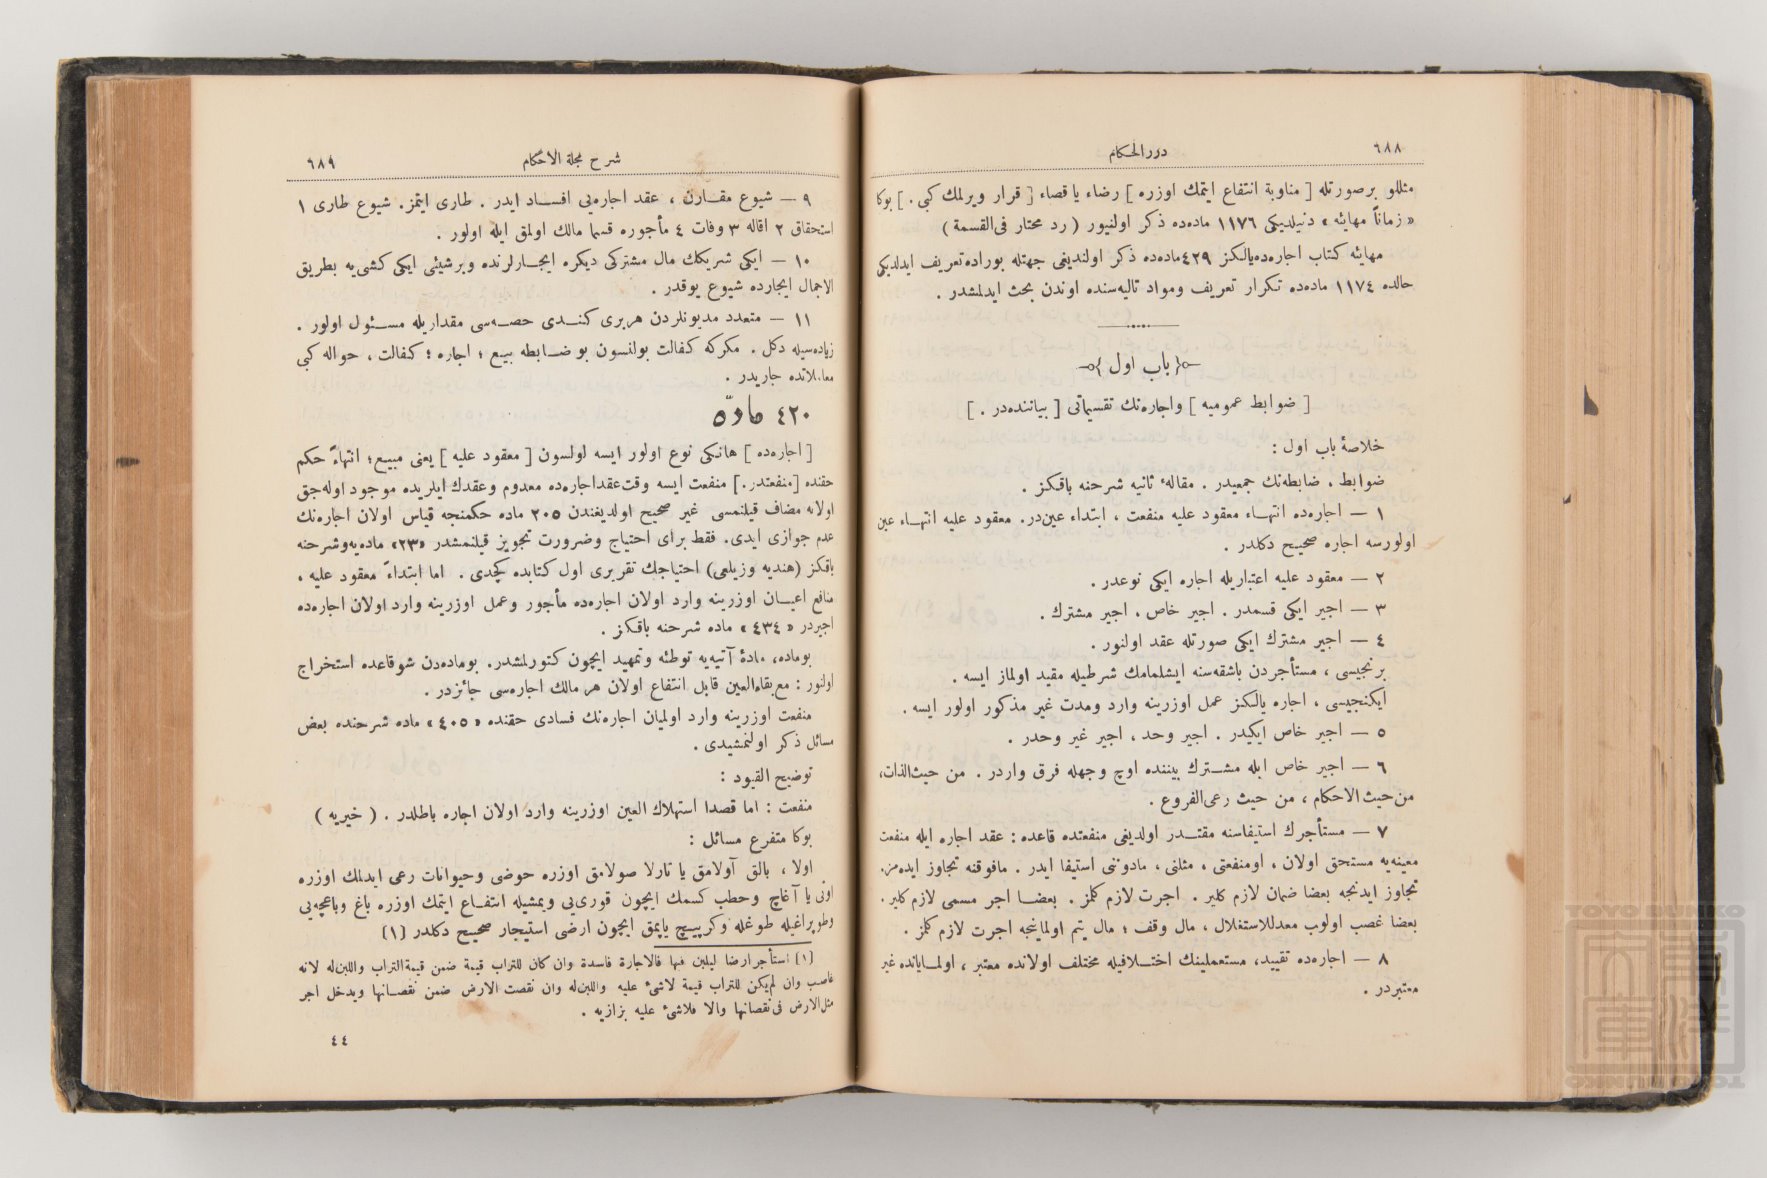 ٦٨٨
دررالحكام
مثللو برصورتله [ مناوبة انتفاع ايتمك اوزره ] رضاء يا قضاء [ قرار ويرلمك كبى . ] بوكا
« زماناً مهايئه » دنيلديكى ١١٧٦ ماده‌ده ذكر اولنيور ( رد محتار فى‌القسمة )
مهايئه كتاب اجاره‌ده يالكز ٤٢٩ ماده‌ده ذكر اولنديغى جهتله بوراده تعريف ايدلديكى
حالده ١١٧٤ ماده‌ده تكرار تعريف ومواد تاليه‌سنده اوندن بحث ايدلمشدر .
﴿ باب اول ﴾
[ ضوابط عموميه ] واجاره‌نك تقسيماتى [ بياننده‌در . ]
خلاصۀ باب اول :
ضوابط ، ضابطه‌نك جمعيدر . مقالۀ ثانيه شرحنه باقكز .
١ — اجاره‌ده انتهاء معقود عليه منفعت ، ابتداء عين‌در. معقود عليه انتهاء عين
اولورسه اجاره صحيح دكلدر .
٢ — معقود عليه اعتباريله اجاره ايكى نوعدر .
٣ — اجير ايكى قسمدر . اجير خاص ، اجير مشترك .
٤ — اجير مشترك ايكى صورتله عقد اولنور .
برنجيسى ، مستأجردن باشقه‌سنه ايشلمامك شرطيله مقيد اولماز ايسه .
ايكنجيسى ، اجاره يالكز عمل اوزرينه وارد ومدت غير مذكور اولور ايسه .
٥ — اجير خاص ايكيدر . اجير وحد ، اجير غير وحدر .
٦ — اجير خاص ايله مشترك بيننده اوچ وجهله فرق واردر . من حيث‌الذات،
من‌حيث‌الاحكام ، من حيث رعى‌الفروع .
٧ — مستأجرك استيفاسنه مقتدر اولديغى منفعتده قاعده : عقد اجاره ايله منفعت
معينه‌يه مستحق اولان ، اومنفعتى ، مثلنى ، مادوننى استيفا ايدر . مافوقنه تجاوز ايده‌مز.
تجاوز ايدنجه بعضا ضمان لازم كلير . اجرت لازم كلمز . بعضا اجر مسمى لازم كلير .
بعضا غصب اولوب معدللاستغلال ، مال وقف ؛ مال يتم اولماينجه اجرت لازم كلمز .
٨ — اجاره‌ده تقييد، مستعملينك اختلافيله مختلف اولانده معتبر ، اولمايانده غير
معتبردر .
شرح مجلة الاحكام
٦٨٩
٩ — شيوع مقارن ، عقد اجاره‌يى افساد ايدر . طارى ايتمز. شيوع طارى ١
استحقاق ٢ اقاله ٣ وفات ٤ مأجوره قسما مالك اولمق ايله اولور .
١٠ — ايكى شريكك مال مشتركى ديكره ايجارلرنده وبرشيئى ايكى كشى‌يه بطريق
الاجمال ايجارده شيوع يوقدر .
١١ — متعدد مديونلردن هربرى كندى حصه‌سى مقداريله مسئول اولور .
زياده‌سيله دكل . مكركه كفالت بولنسون بو ضابطه بيع ؛ اجاره ؛ كفالت ، حواله كبى
معاملاتده جاريدر .
٤٢٠ مادّه
[ اجاره‌ده ] هانكى نوع اولور ايسه اولسون [ معقود عليه ] يعنى مبيع؛ انتهاءً حكم
حقنده [منفعتدر.] منفعت ايسه وقت‌عقداجاره‌ده معدوم وعقدك ايلريده موجود اوله‌جق
اولانه مضاف قيلنمسى غير صحيح اولديغندن ٢٠٥ ماده حكمنجه قياس اولان اجاره‌نك
عدم جوازى ايدى. فقط براى احتياج وضرورت تجويز قيلنمشدر «٢٣» ماده‌يه‌وشرحنه
باقكز (هنديه وزيلعى) احتياجك تقريرى اول كتابده كچدى . اما ابتداءً معقود عليه ،
منافع اعيان اوزرينه وارد اولان اجاره‌ده مأجور وعمل اوزرينه وارد اولان اجاره‌ده
اجيردر « ٤٣٤ » ماده شرحنه باقكز .
بوماده، مادۀ آتيه‌يه توطئه وتمهيد ايچون كتورلمشدر. بوماده‌دن شوقاعده استخراج
اولنور : مع‌بقاءالعين قابل انتفاع اولان هر مالك اجاره‌سى جائزدر .
منفعت اوزرينه وارد اولميان اجاره‌نك فسادى حقنده « ٤٠٥ » ماده شرحنده بعض
مسائل ذكر اولنمشيدى .
توضيح القيود :
منفعت : اما قصدا استهلاك العين اوزرينه وارد اولان اجاره باطلدر . ( خيريه )
بوكا متفرع مسائل :
اولا ، بالق آولامق يا تارلا صولامق اوزره حوضى وحيوانات رعى ايدلمك اوزره
اوتى يا آغاچ وحطب كسمك ايچون قورى‌يى ويمشيله انتفاع ايتمك اوزره باغ وباغچه‌يى
وطوپراغيله طوغله وكرپيج ياپمق ايچون ارضى استيجار صحيح دكلدر (١)
(١) استأجرارضا ليلبن فيها فالاجارة فاسدة وان كان للتراب قيمة ضمن قيمةالتراب واللبن‌له لانه
غاصب وان لم‌يكن للتراب قيمة لاشئ عليه واللبن‌له وان نقصت الارض ضمن نقصانها ويدخل اجر
مثل‌الارض فى‌نقصانها والا فلاشئ عليه بزازيه .
٤٤
TOYO BUNKO
東洋文庫
TOYO BUNKO